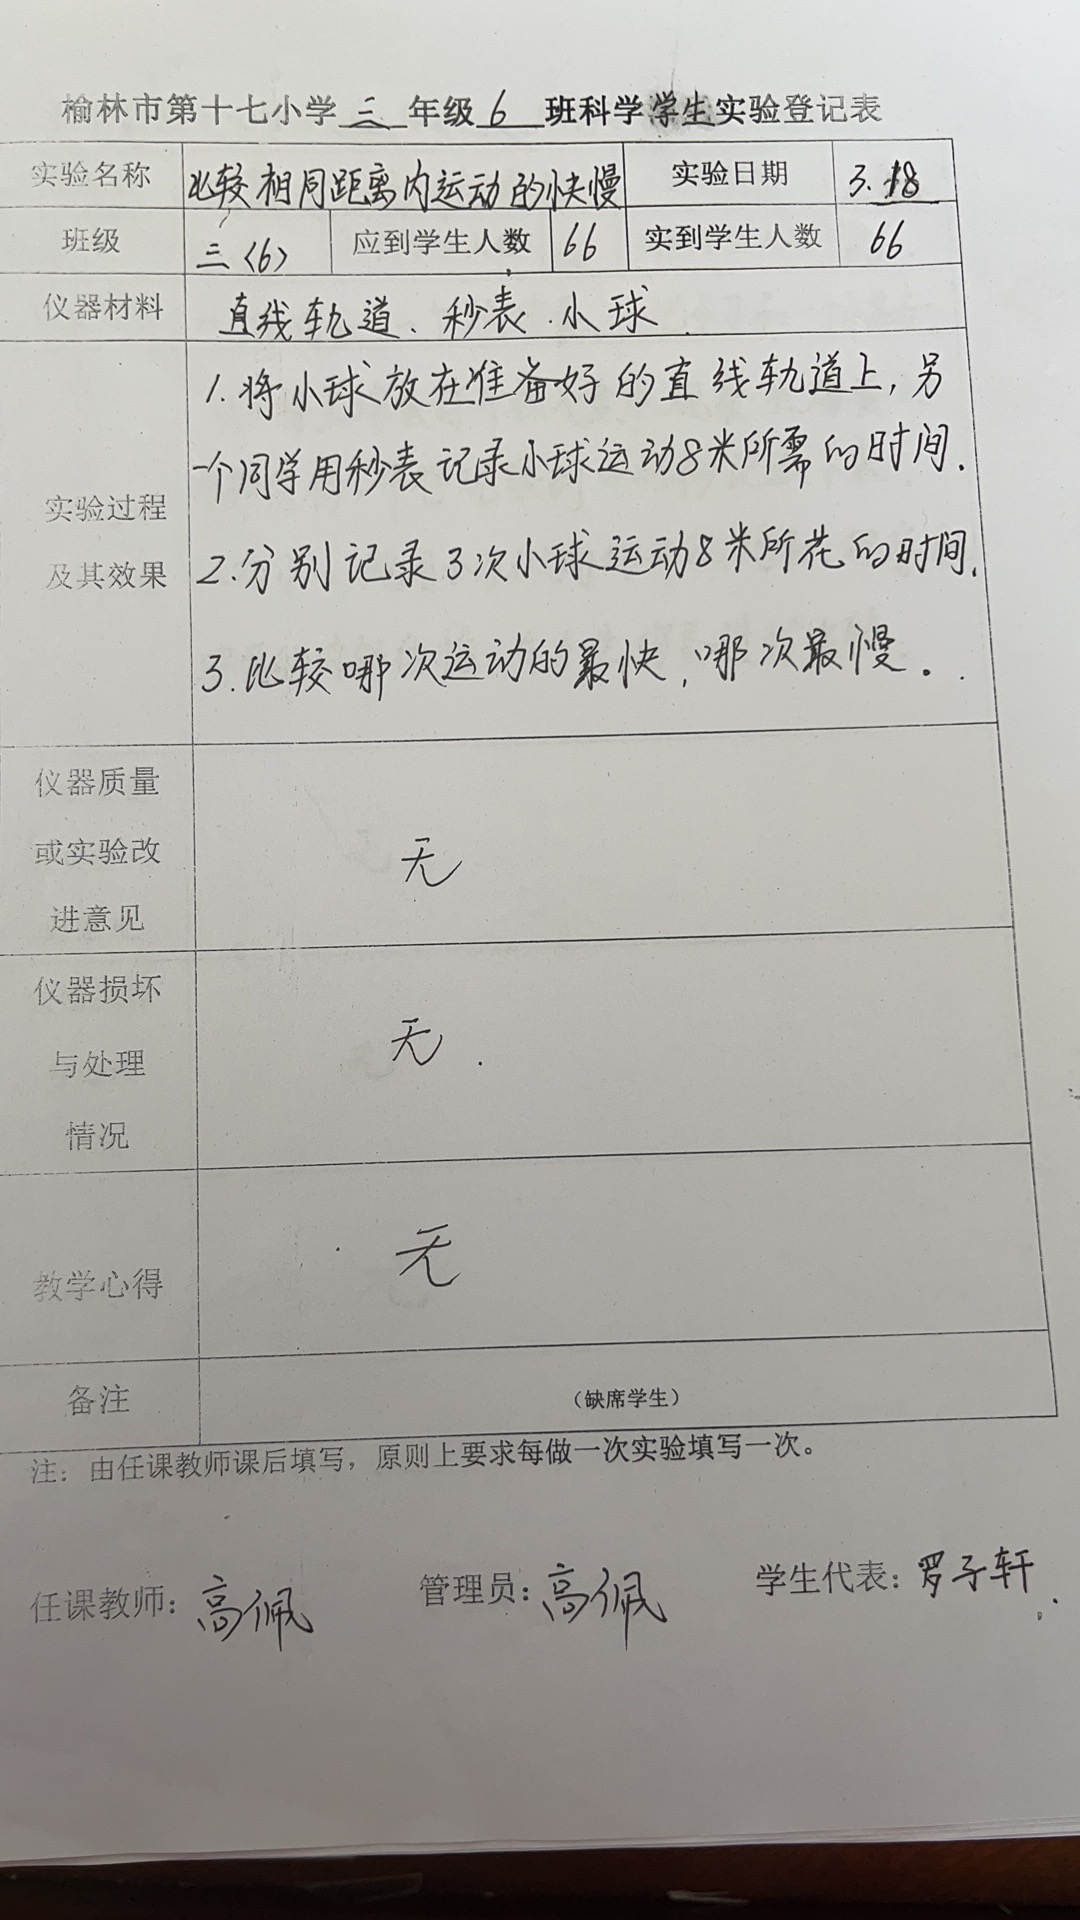 榆林市第十七小学 三 年级 6 班科学学生实验登记表
实验名称 比较相同距离内运动的快慢 实验日期 3.18
班级 三(6) 应到学生人数 66 实到学生人数 66
仪器材料 直线轨道、秒表.小球.
1.将小球放在准备好的直线轨道上,另
一个同学用秒表记录小球运动8米所需的时间.
实验过程
及其效果
2.分别记录3次小球运动8米所花的时间.
3.比较哪次运动的最快,哪次最慢。
仪器质量
或实验改
进意见
无
仪器损坏
与处理
情况
无.
教学心得 无
备注 (缺席学生)
注：由任课教师课后填写，原则上要求每做一次实验填写一次。
任课教师：高佩 管理员：高佩 学生代表：罗子轩